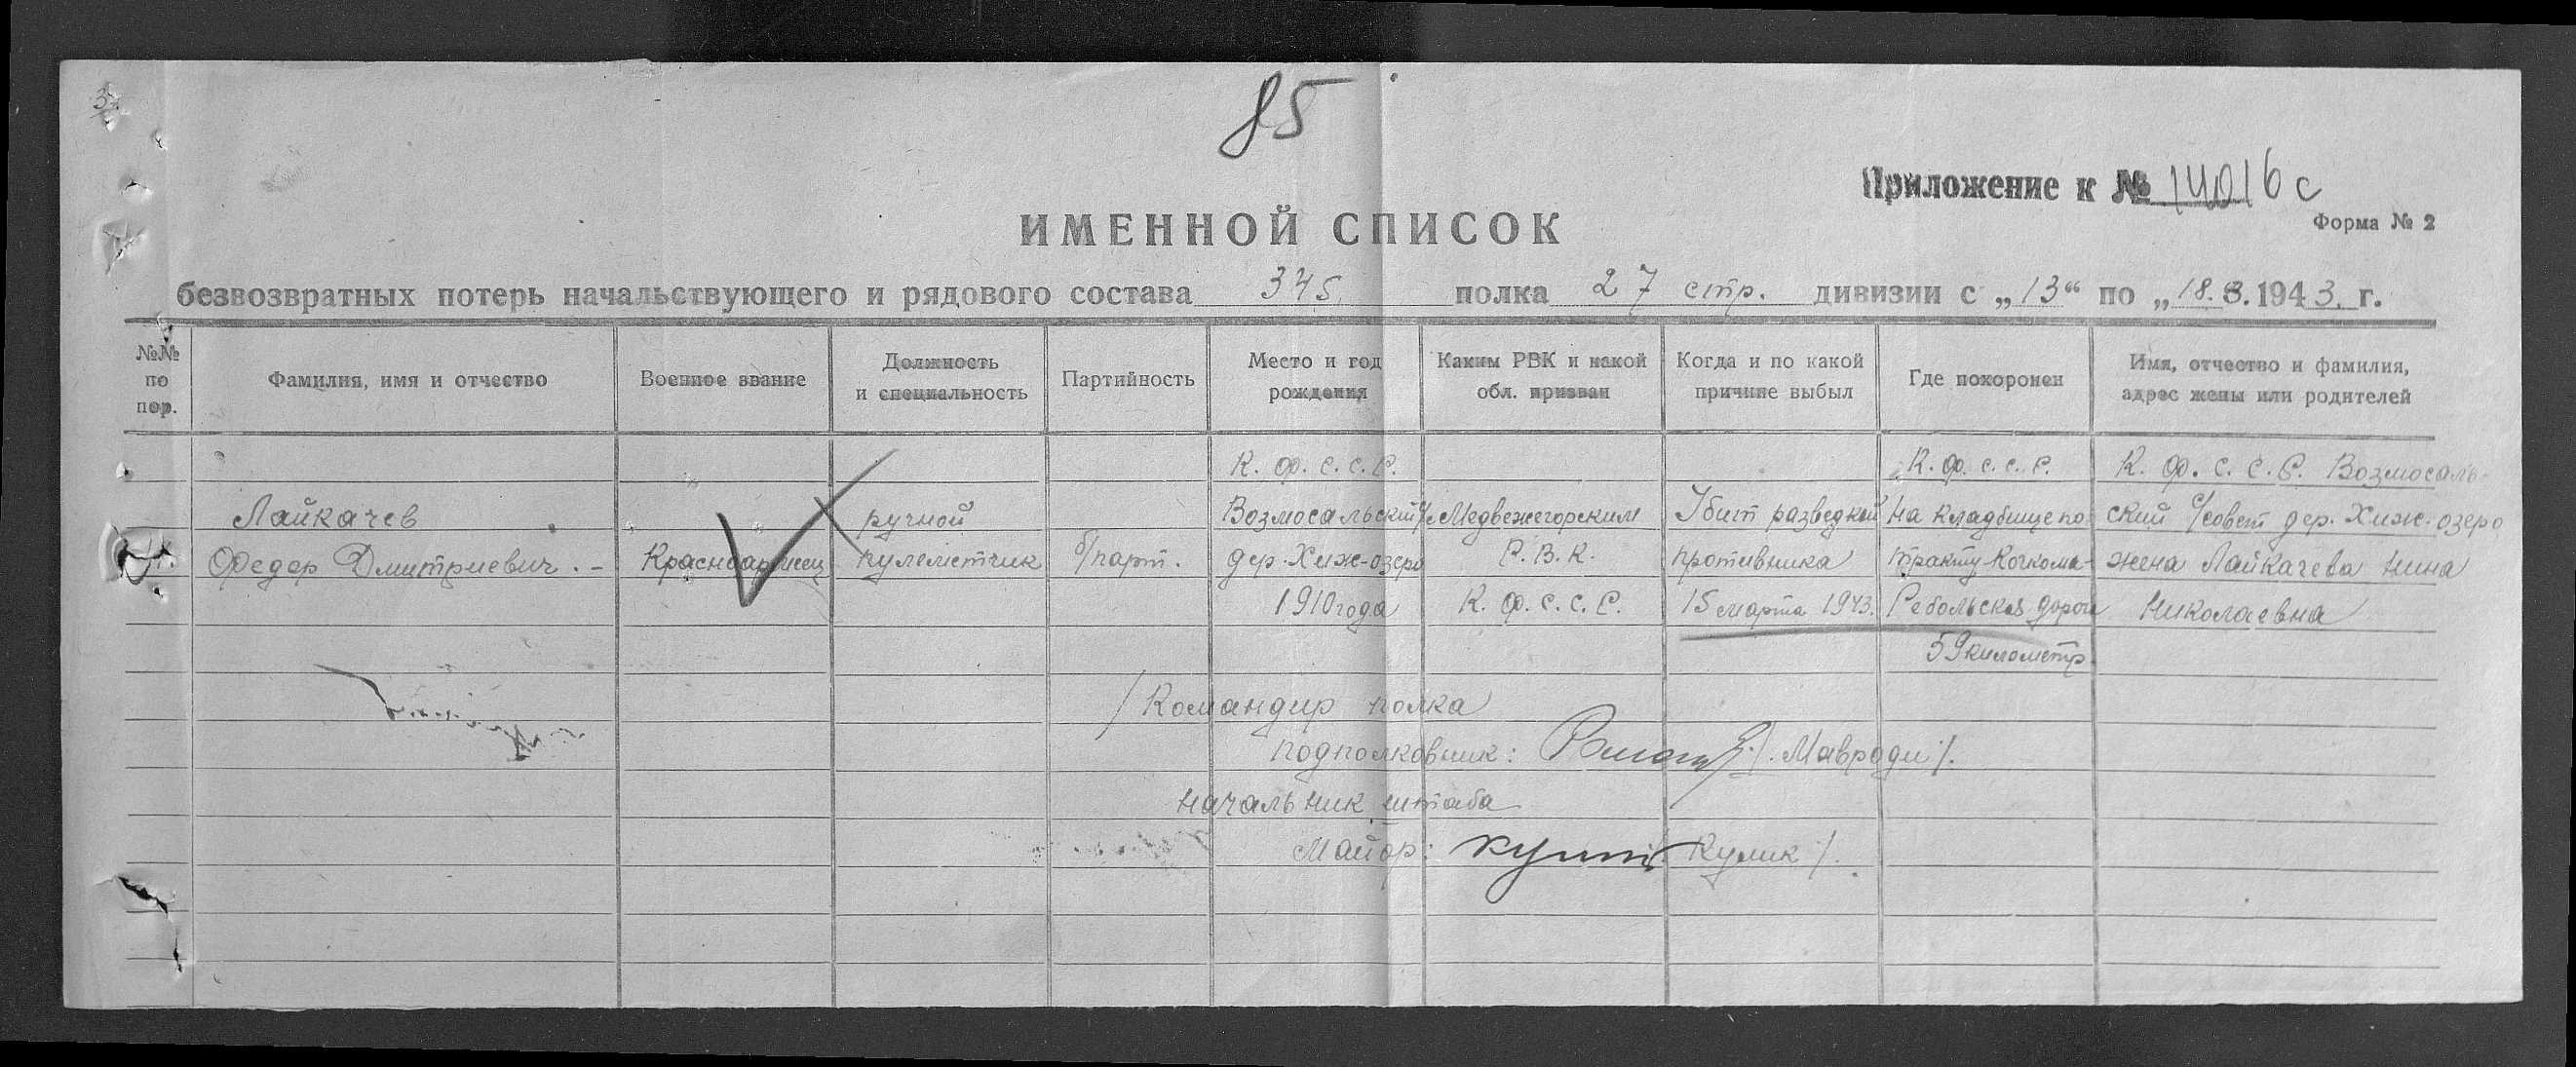 85
Приложение к № 14016с
Форма № 2
ИМЕННОЙ СПИСОК
безвозвратных потерь начальствующего и рядового состава 345 полка 27 стр. дивизии с „13“ по „18. 3. 1943. г.
№№ по пор.
Фамилия, имя и отчество
Военное звание
Должность и специальность
Партийность
Место и год рождения
Каким РВК и какой обл. призван
Когда и по какой причине выбыл
Где похоронен
Имя, отчество и фамилия, адрес жены или родителей
1.
Лайкачев
Федор Дмитриевич. –
Красноармеец
ручной
пулеметчик
б/парт.
К. Ф. С. С. Р.
Возмосальский с/с
дер. Хиж-озеро
1910 года
Медвежегорским
Р. В. К.
К. Ф. С. С. Р.
Убит разведкой
противника
15 марта 1943.
К. Ф. С. С. Р.
На кладбище по
тракту Кочкома-
Ребольская дорога
59 километр.
К. Ф. С. С. Р. Возмосаль-
ский с/совет дер. Хиж-озеро
жена Лайкачева Нина
Николаевна
/ Командир полка
подполковник: /. Мавроди /.
Начальник штаба
Майор: Кулик /.